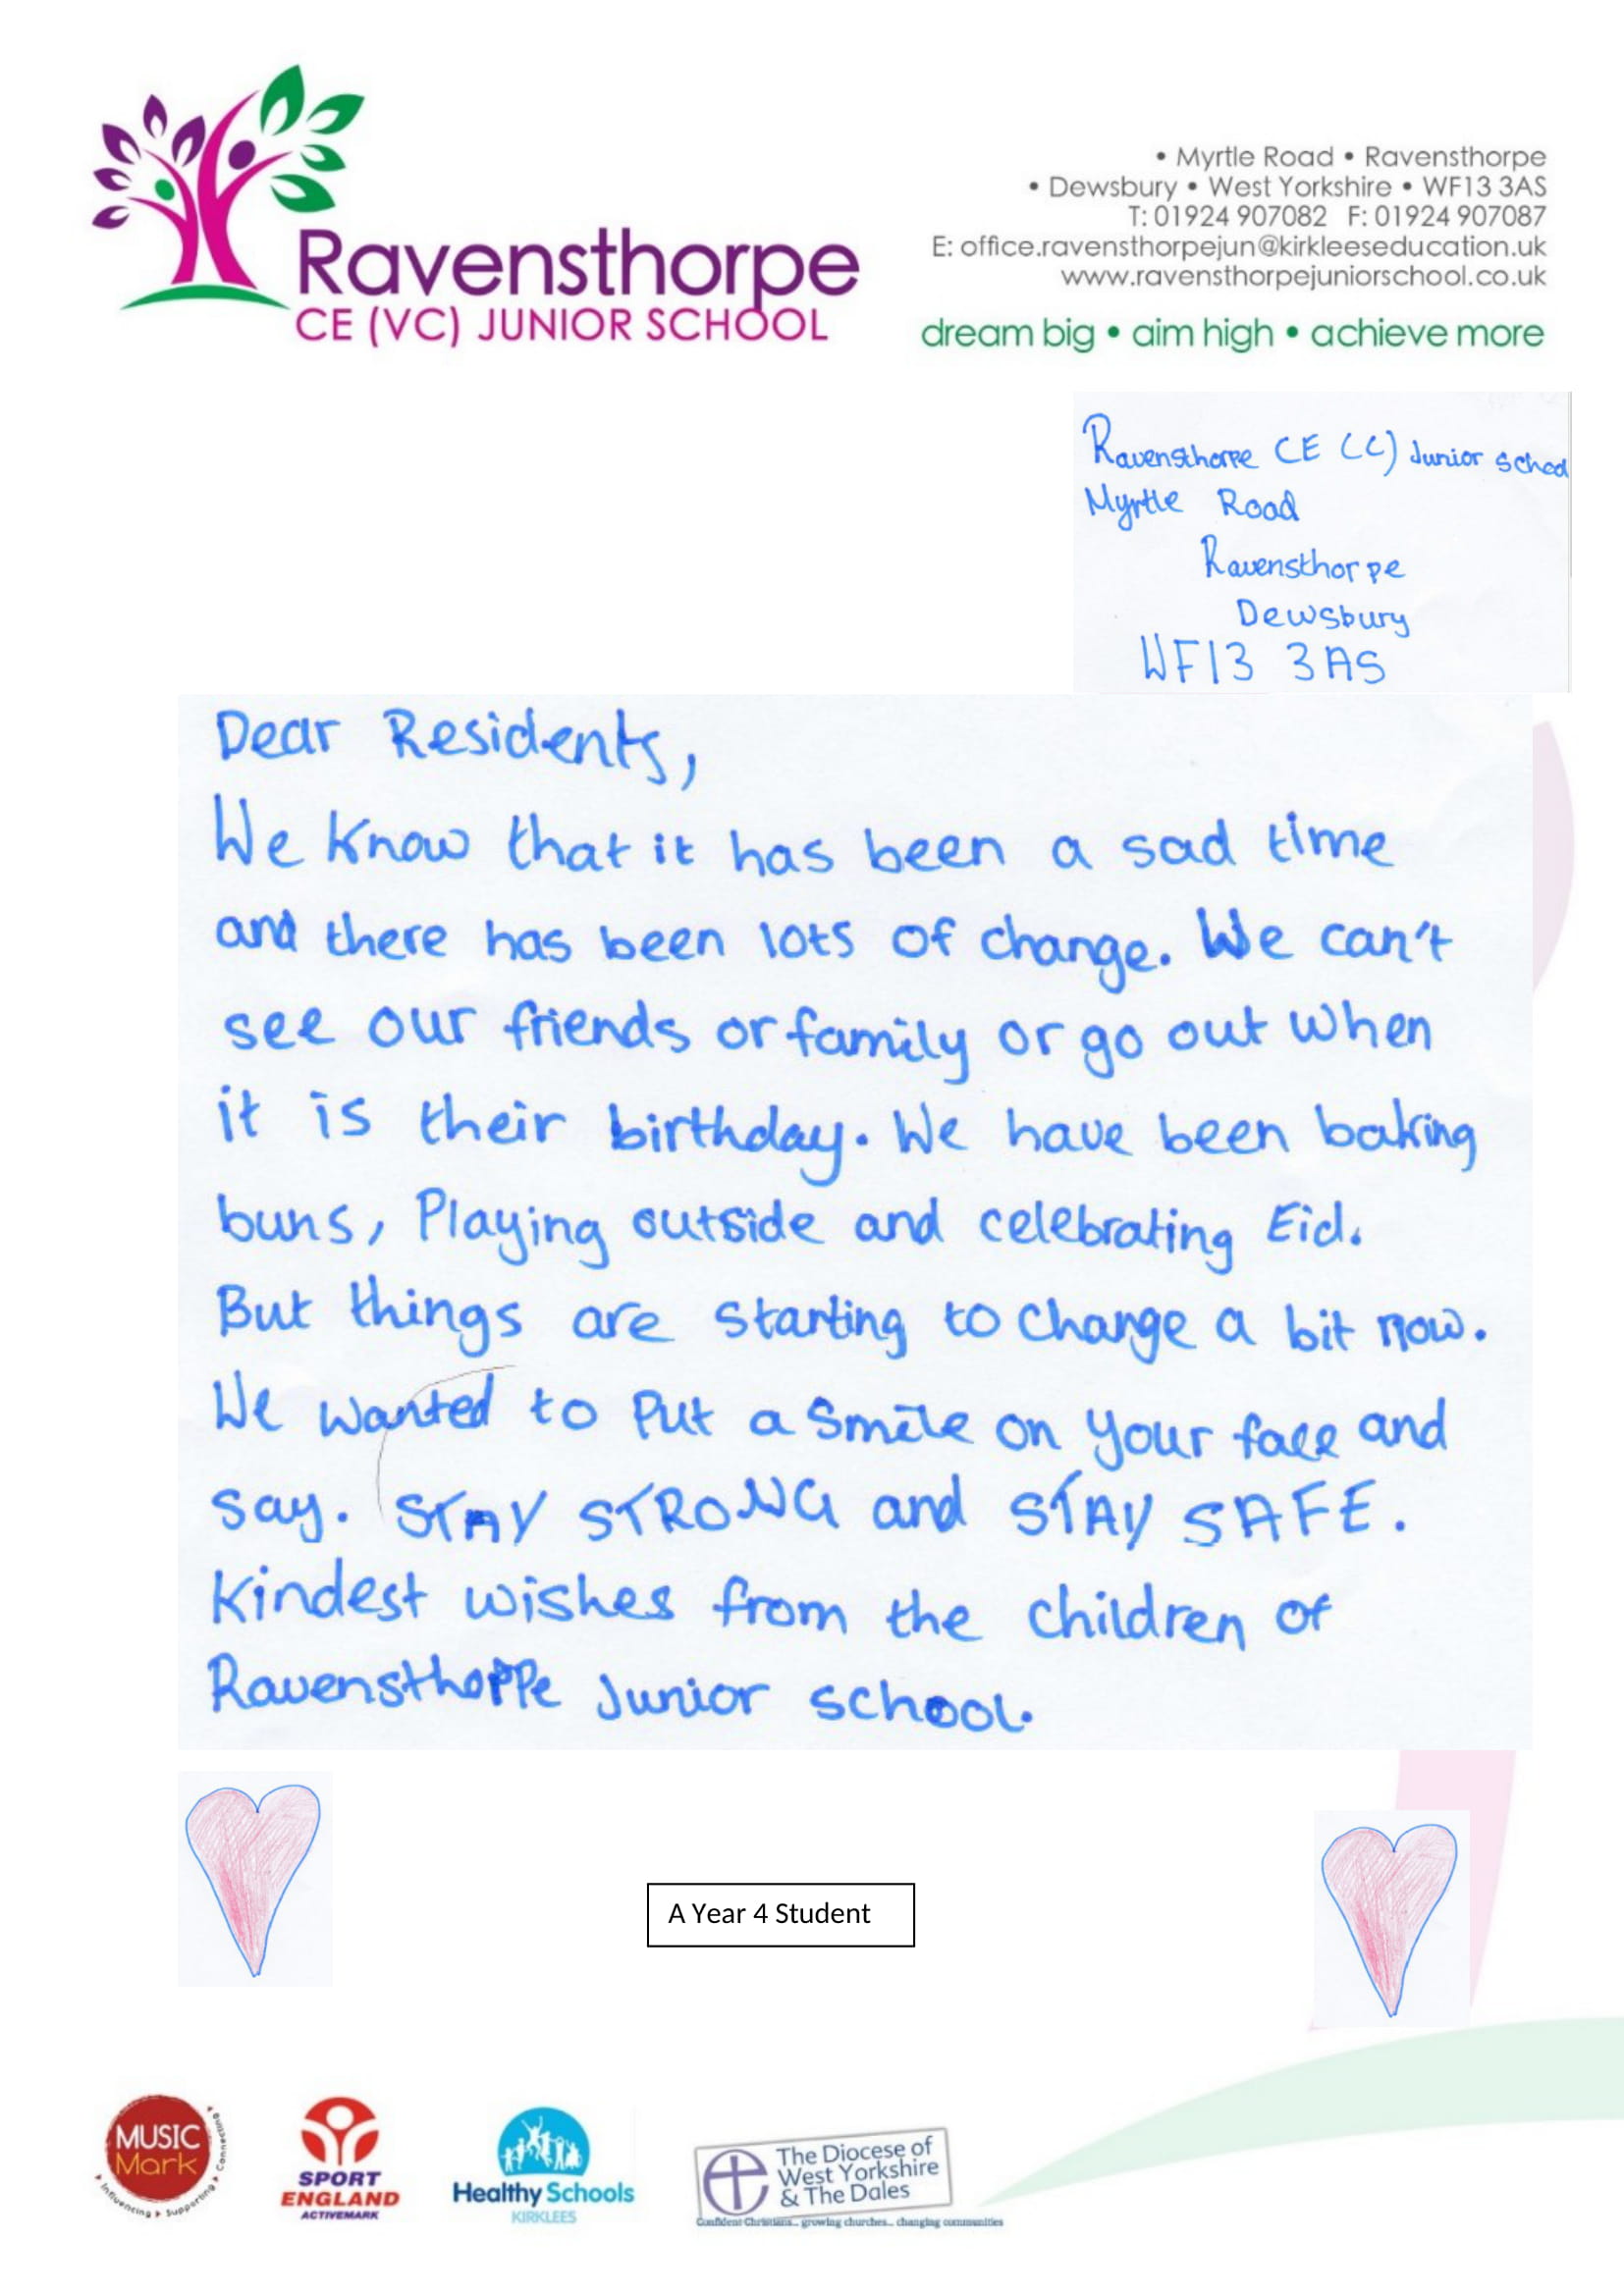 Ravensthorpe
CE (VC) JUNIOR SCHOOL
• Myrtle Road • Ravensthorpe
• Dewsbury • West Yorkshire • WF13 3AS
T: 01924 907082 F: 01924 907087
E: office.ravensthorpejun@kirkleeseducation.uk
www.ravensthorpejuniorschool.co.uk
dream big • aim high • achieve more
Ravensthorpe CE (C) Junior school
Myrtle Road
Ravensthorpe
Dewsbury
WF13 3AS
Dear Residents,
We know that it has been a sad time
and there has been lots of change. We can't
see our friends or family or go out when
it is their birthday. We have been baking
buns, Playing outside and celebrating Eid.
But things are starting to change a bit now.
We wanted to Put a smile on your face and
say. STAY STRONG and STAY SAFE.
Kindest wishes from the children of
Ravensthorpe Junior school.
A Year 4 Student
MUSIC
Mark
Influencing Supporting Connecting
SPORT
ENGLAND
ACTIVEMARK
Healthy Schools
KIRKLEES
The Diocese of
West Yorkshire
& The Dales
Confident Christians... growing churches... changing communities